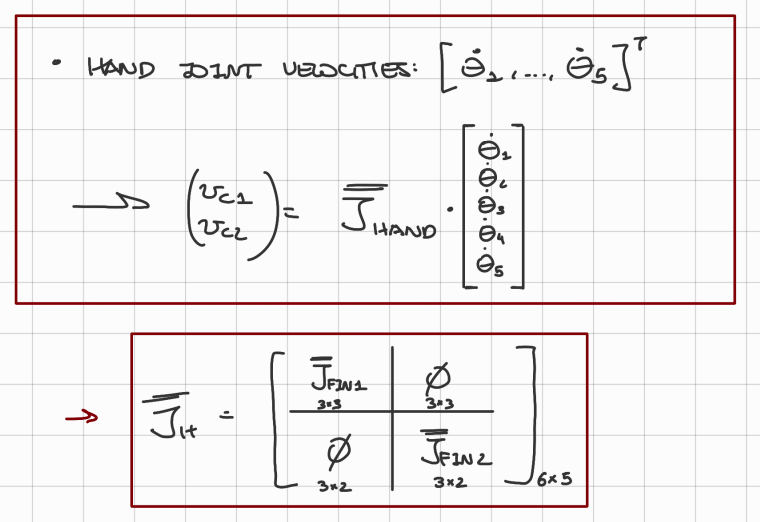 • HAND JOINT VELOCITIES: [θ̇₁, ..., θ̇₅]ᵀ
→ (v_C1 v_C2) = J̿_HAND · [θ̇₁ θ̇₂ θ̇₃ θ̇₄ θ̇₅]
→ J̿_H = [ J̿_FIN1 3×3 | ∅ 3×3
∅ 3×2 | J̿_FIN2 3×2 ] 6×5